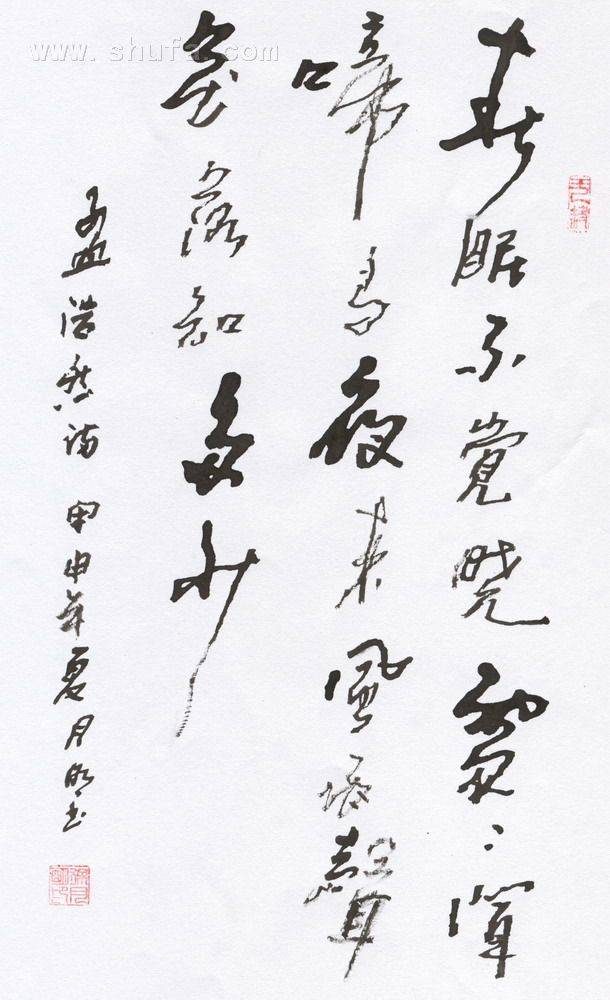 www.shufa.com
春眠不覺曉處〻聞
啼鳥夜来風聲
花落知多少
孟浩然诗 甲申年夏月明书